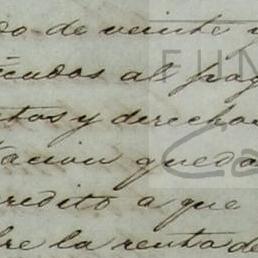 do de veinte y
icados al pag
tos y derechos
tacion queda
credito a que
bre la renta de
FUN
Ca